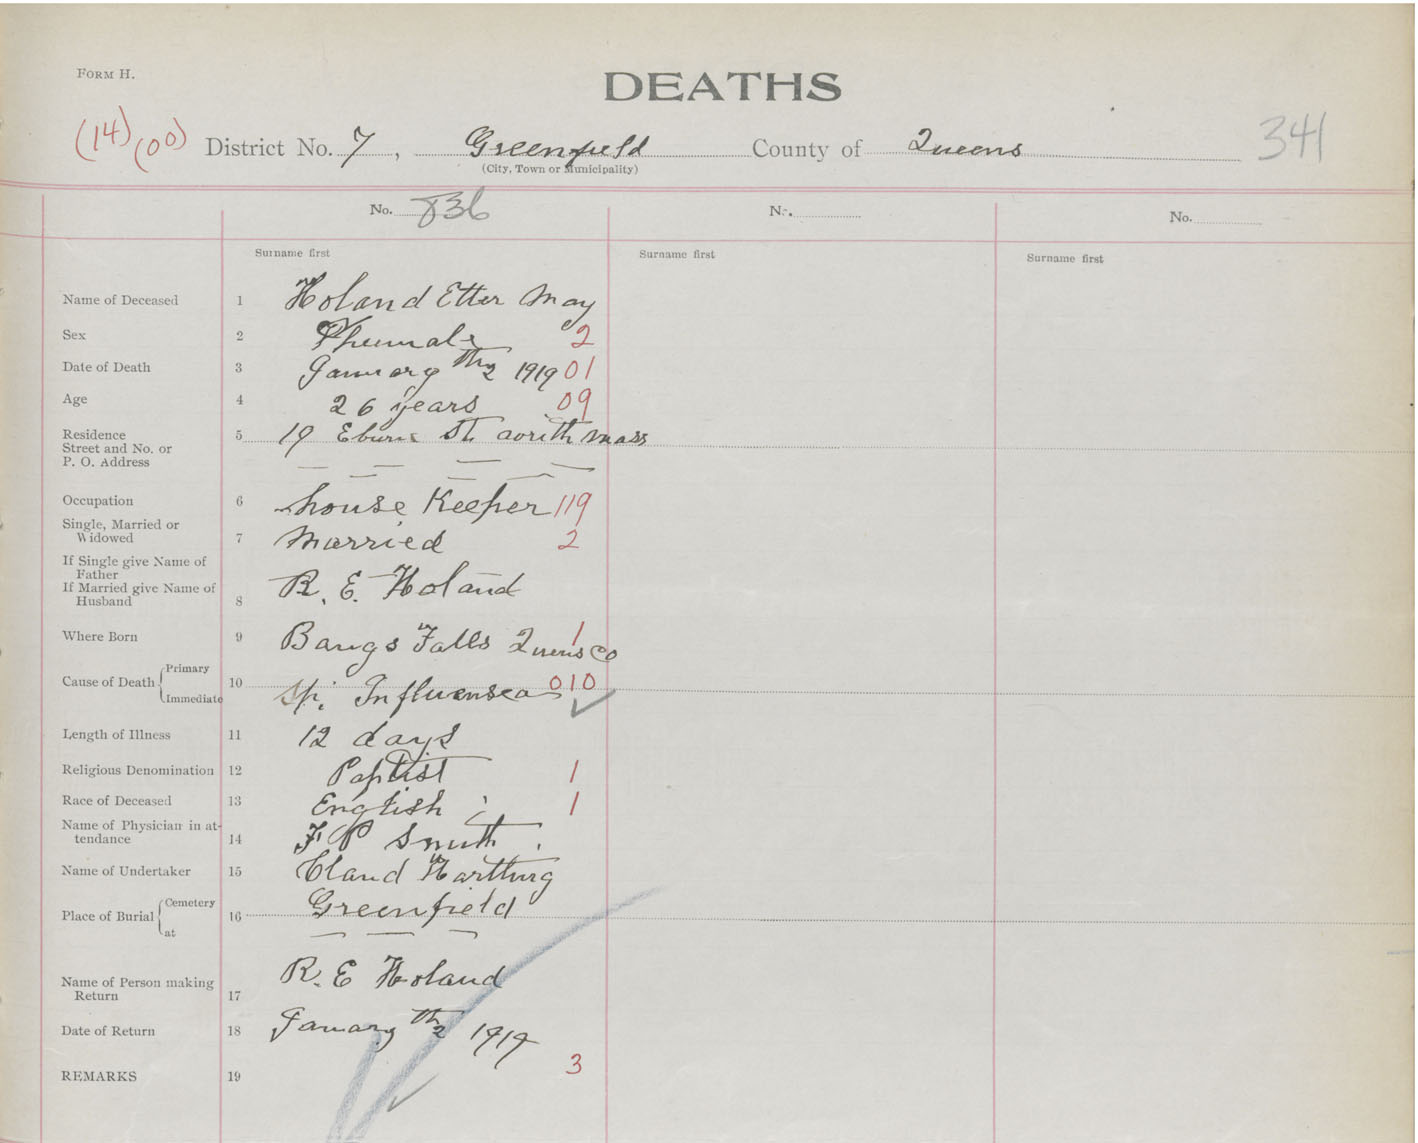 FORM H.
DEATHS
(14) (00) District No. 7, Greenfield County of Queens 341
(City, Town or Municipality)
No. 836 No. No.
Surname first Surname first Surname first
Name of Deceased 1 Holand Etter May
Sex 2 Phumale 2
Date of Death 3 January th2 1919 01
Age 4 26 years 09
Residence 5 19 St. mass
Street and No. or
P. O. Address
Occupation 6 house Keeper 119
Single, Married or
Widowed 7 Married 2
If Single give Name of
Father
If Married give Name of
Husband 8 R. E. Holand
Where Born 9 Bangs Falls Quens Co 1
Cause of Death Primary
Immediate 10 sp; Influensea 010
Length of Illness 11 12 days
Religious Denomination 12 Paptist 1
Race of Deceased 13 English 1
Name of Physician in at-
tendance 14 F P Smith.
Name of Undertaker 15
Place of Burial Cemetery
at 16 Greenfield
Name of Person making
Return 17 R. E Holand
Date of Return 18 January th2 1919
3
REMARKS 19